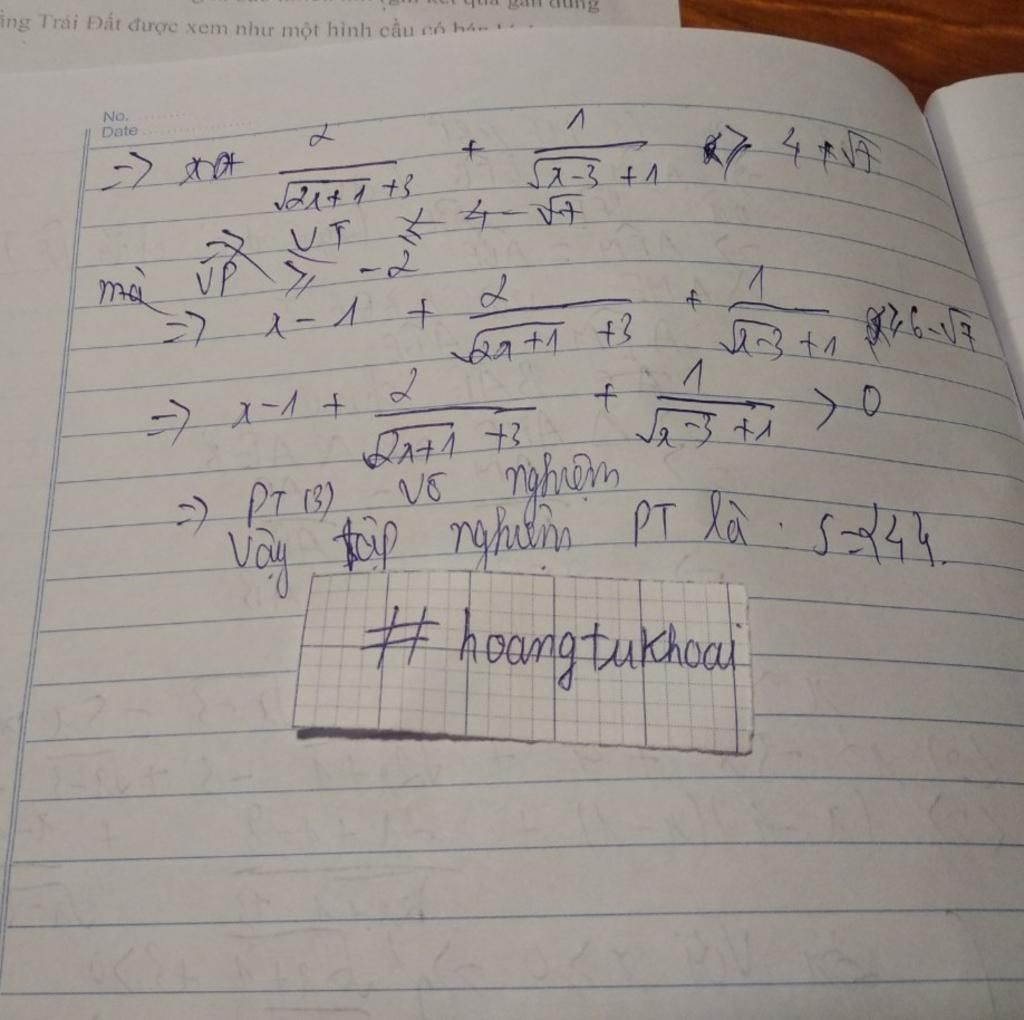 ẳng Trái Đất được xem như một hình cầu có bán
No.
Date
=> 2/(√(2x+1) +3) + 1/(√(x-3) +1) ≥ 4 - √7
=> VT ≤ 4 - √7
mà VP ≥ -2
=> x-1 + 2/(√(2x+1) +3) + 1/(√(x-3) +1) ≥ 6-√7
=> x-1 + 2/(√(2x+1) +3) + 1/(√(x-3) +1) > 0
=> PT (3) vô nghiệm
Vậy tập nghiệm PT là S={4}.
# hoangtukhoai